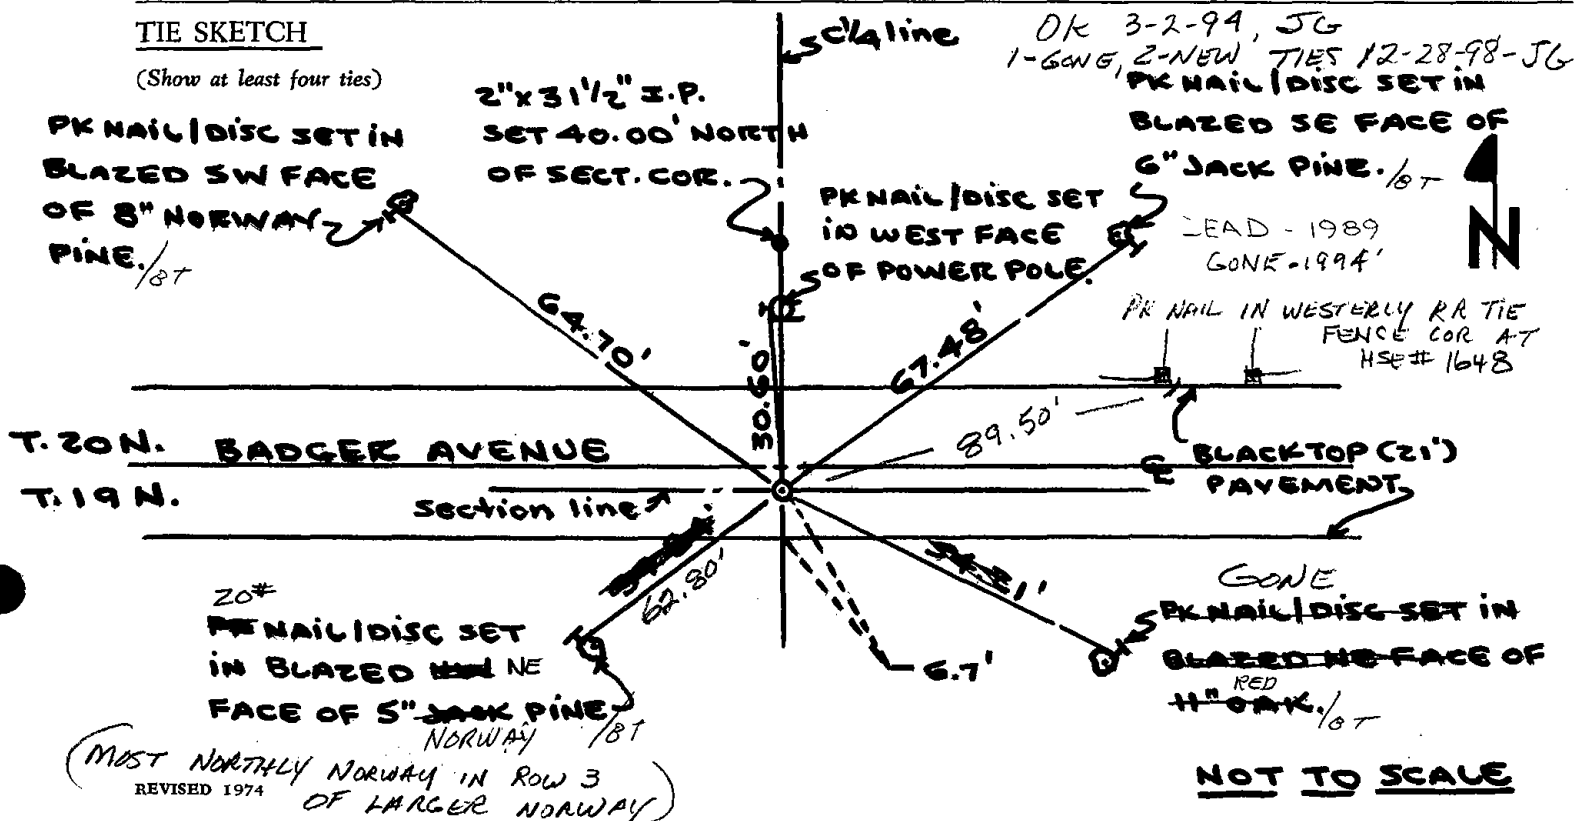 TIE SKETCH
(Show at least four ties)
C¼ line
OK 3-2-94, JG
1-GONE, 2-NEW TIES 12-28-98-JG
PK NAIL/DISC SET IN
BLAZED SW FACE
OF 8" NORWAY
PINE./BT
2"x31½" I.P.
SET 40.00' NORTH
OF SECT. COR.
PK NAIL/DISC SET
IN WEST FACE
OF POWER POLE.
PK NAIL/DISC SET IN
BLAZED SE FACE OF
6" JACK PINE./BT
DEAD - 1989
GONE - 1994
N
PK NAIL IN WESTERLY RR TIE
FENCE COR AT
HSE# 1648
64.70'
30.60'
67.48'
89.50'
T. 20 N. BADGER AVENUE
T. 19 N.
section line
CL
BLACKTOP (21')
PAVEMENT
62.80'
54.21'
6.7'
20#
PK NAIL/DISC SET
IN BLAZED NE
FACE OF 5" JACK PINE
NORWAY /BT
(MOST NORTHLY NORWAY IN ROW 3
OF LARGER NORWAY)
REVISED 1974
GONE
PK NAIL/DISC SET IN
BLAZED NE FACE OF
RED
11" OAK./BT
NOT TO SCALE